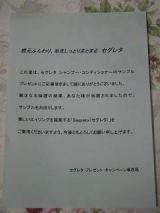 根元ふんわり、毛先しっとりまとまる セグレタ
この度は、セグレタ シャンプー・コンディショナーのサンプル
プレゼントにご応募頂きまして誠にありがとうございました。
厳正なる抽選の結果、あなた様が当選されましたので、
サンプルをお送りします。
美しいエイジングを提案する「Segreta(セグレタ)」を
ご愛用くださいますよう、今後ともよろしくお願い申し上げます。
セグレタ/プレゼント キャンペーン事務局